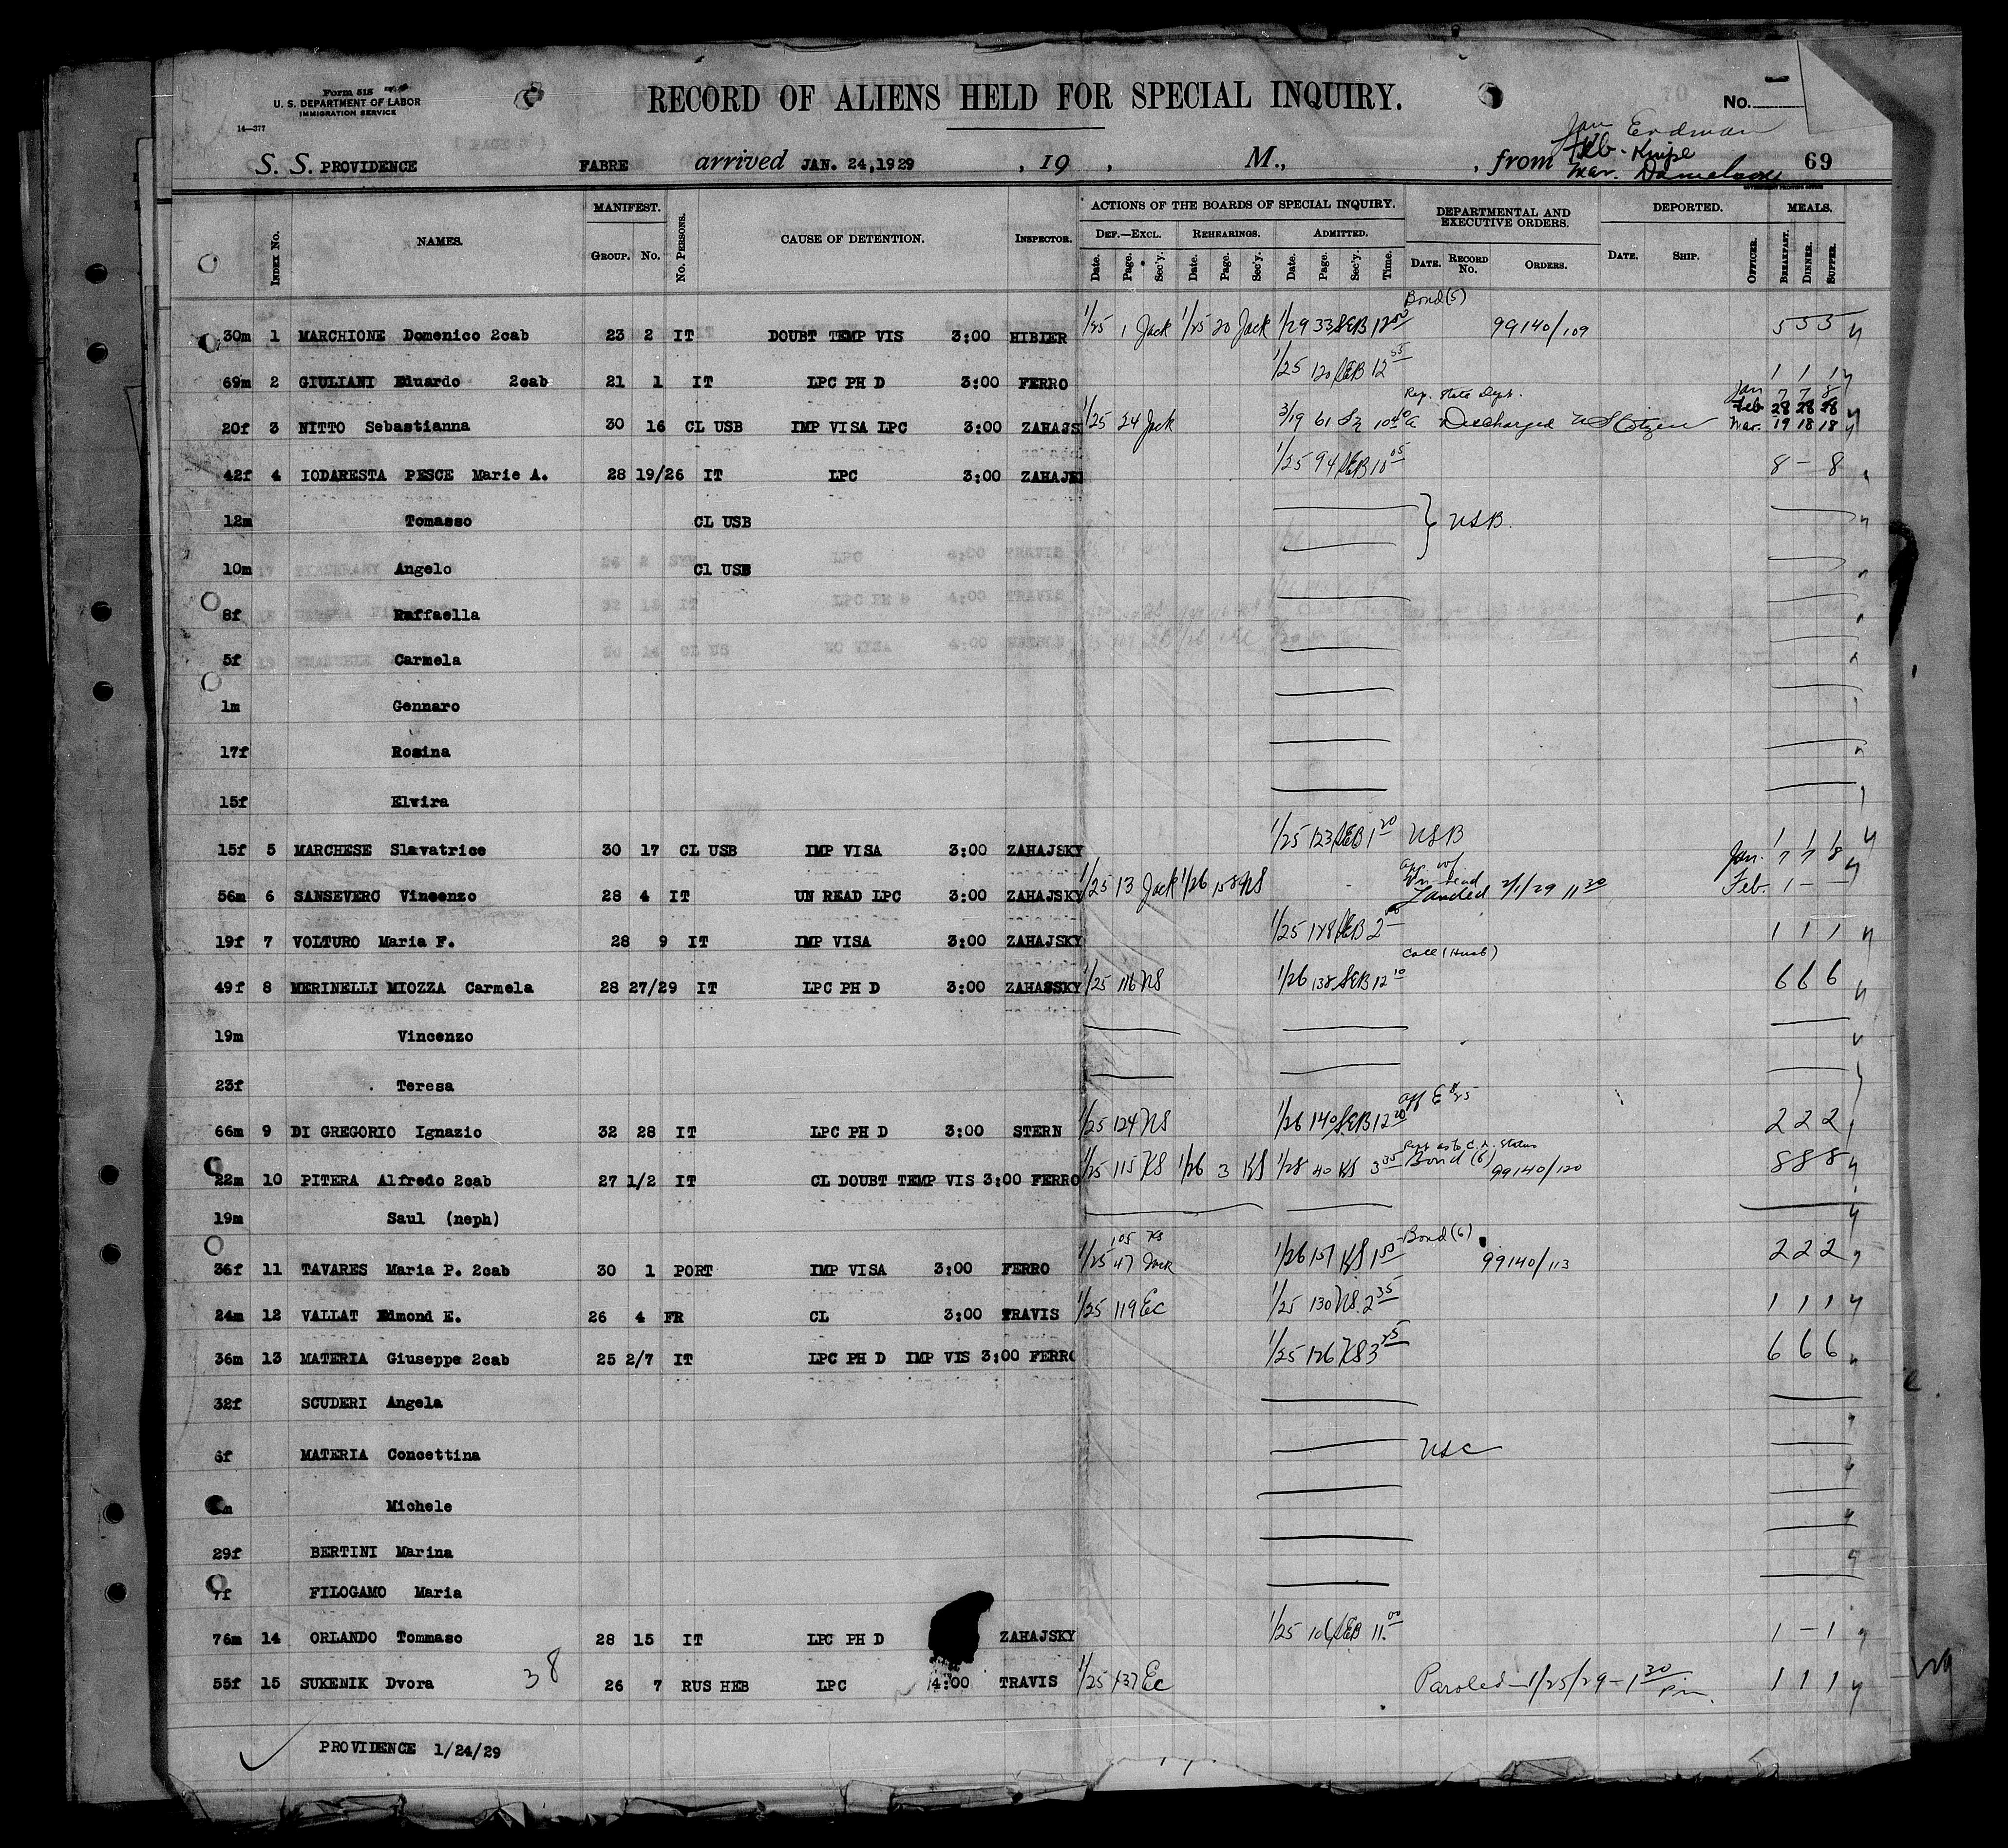 Form 515
U. S. DEPARTMENT OF LABOR
IMMIGRATION SERVICE
14—377
RECORD OF ALIENS HELD FOR SPECIAL INQUIRY.
No.
Jan Erdman
Feb. Knipe
Mar. Danielson
S. S. PROVIDENCE FABRE arrived JAN. 24,1929 , 19 , M., , from 69
INDEX No. NAMES. MANIFEST. GROUP. No. No. PERSONS. CAUSE OF DETENTION. INSPECTOR. ACTIONS OF THE BOARDS OF SPECIAL INQUIRY. DEF.—EXCL. Date. Page. Sec'y. REHEARINGS. Date. Page. Sec'y. ADMITTED. Date. Page. Sec'y. Time. DEPARTMENTAL AND EXECUTIVE ORDERS. DATE. RECORD No. ORDERS. DEPORTED. DATE. SHIP. OFFICER. MEALS. BREAKFAST. DINNER. SUPPER.
Bond (5)
30m 1 MARCHIONE Domenico 2cab 23 2 IT DOUBT TEMP VIS 3:00 HIBIER 1/25 1 Jack 1/25 20 Jack 1/29 33 SEB 12 00 99140/109 5 5 5
69m 2 GIULIANI Eduardo 2cab 21 1 IT LPC PH D 3:00 FERRO 1/25 120 SEB 12 55 1 1 1
Rep. State Dept. Jan 7 7 8
Feb 28 28 28
20f 3 NITTO Sebastianna 30 16 CL USB IMP VISA LPC 3:00 ZAHAJS 1/25 24 Jack 3/19 61 10 40 a Discharged US Citizen Mar. 19 18 18
42f 4 IODARESTA PESCE Marie A. 28 19/26 IT LPC 3:00 ZAHAJ 1/25 94 SEB 10 05 8 — 8
12m Tomasso CL USB USB.
10m Angelo Cl USB
8f Raffaella
5f Carmela
1m Gennaro
17f Rosina
15f Elvira
15f 5 MARCHESE Slavatrice 30 17 CL USB IMP VISA 3:00 ZAHAJSKY 1/25 123 SEB 1 20 USB 1 1 1
Jan. 7 7 8
56m 6 SANSEVERO Vincenzo 28 4 IT UN READ LPC 3:00 ZAHAJSKY 1/25 13 Jack 1/26 158 NS Landed 2/1/29 11 30 Feb. 1 — —
19f 7 VOLTURO Maria F. 28 9 IT IMP VISA 3:00 ZAHAJSKY 1/25 148 SEB 2 1 1 1
Call (Husb)
49f 8 MERINELLI MIOZZA Carmela 28 27/29 IT LPC PH D 3:00 ZAHASSKY 1/25 116 NS 1/26 138 SEB 12 10 6 6 6
19m Vincenzo
23f Teresa
66m 9 DI GREGORIO Ignazio 32 28 IT LPC PH D 3:00 STERN 1/25 124 NS 1/26 140 SEB 12 20 2 2 2
22m 10 PITERA Alfredo 2cab 27 1/2 IT CL DOUBT TEMP VIS 3:00 FERRO 1/25 115 KS 1/26 3 KS 1/28 40 KS 3 35 Bond (6) 99140/120 8 8 8
19m Saul (neph)
105 KS Bond (6)
36f 11 TAVARES Maria P. 2cab 30 1 PORT IMP VISA 3:00 FERRO 1/25 47 Jack 1/26 157 KS 1 50 99140/113 2 2 2
24m 12 VALLAT Edmond E. 26 4 FR CL 3:00 TRAVIS 1/25 119 Ec 1/25 130 NS. 2 35 1 1 1
36m 13 MATERIA Giuseppe 2cab 25 2/7 IT LPC PH D IMP VIS 3:00 FERRO 1/25 126 KS 3 25 6 6 6
32f SCUDERI Angela
6f MATERIA Concettina USC
m Michele
29f BERTINI Marina
7f FILOGAMO Maria
76m 14 ORLANDO Tommaso 28 15 IT LPC PH D ZAHAJSKY 1/25 SEB 11. 00 1 — 1
55f 15 SUKENIK Dvora 38 26 7 RUS HEB LPC 4:00 TRAVIS 1/25 137 Ec Paroled — 1/25/29 — 1 30 Pm. 1 1 1
PROVIDENCE 1/24/29